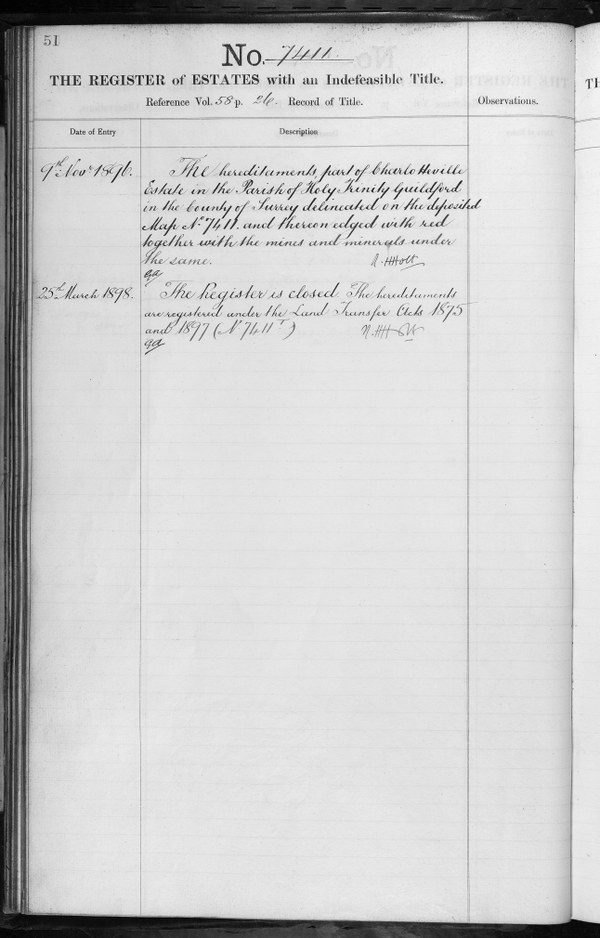 51
No. 7411.
THE REGISTER of ESTATES with an Indefeasible Title.
Reference Vol. 58 p. 26. Record of Title.
Observations.
Date of Entry
Description
9th Novr 1896.
The hereditaments, part of Charlotteville
Estate in the Parish of Holy Trinity Guildford
in the County of Surrey delineated on the deposited
Map No 7411. and thereon edged with red
together with the mines and minerals under
the same.
Holt
25th March 1898.
The Register is closed. The hereditaments
are registered under the Land Transfer Acts 1875
and 1897 (No 7411T)
Holt